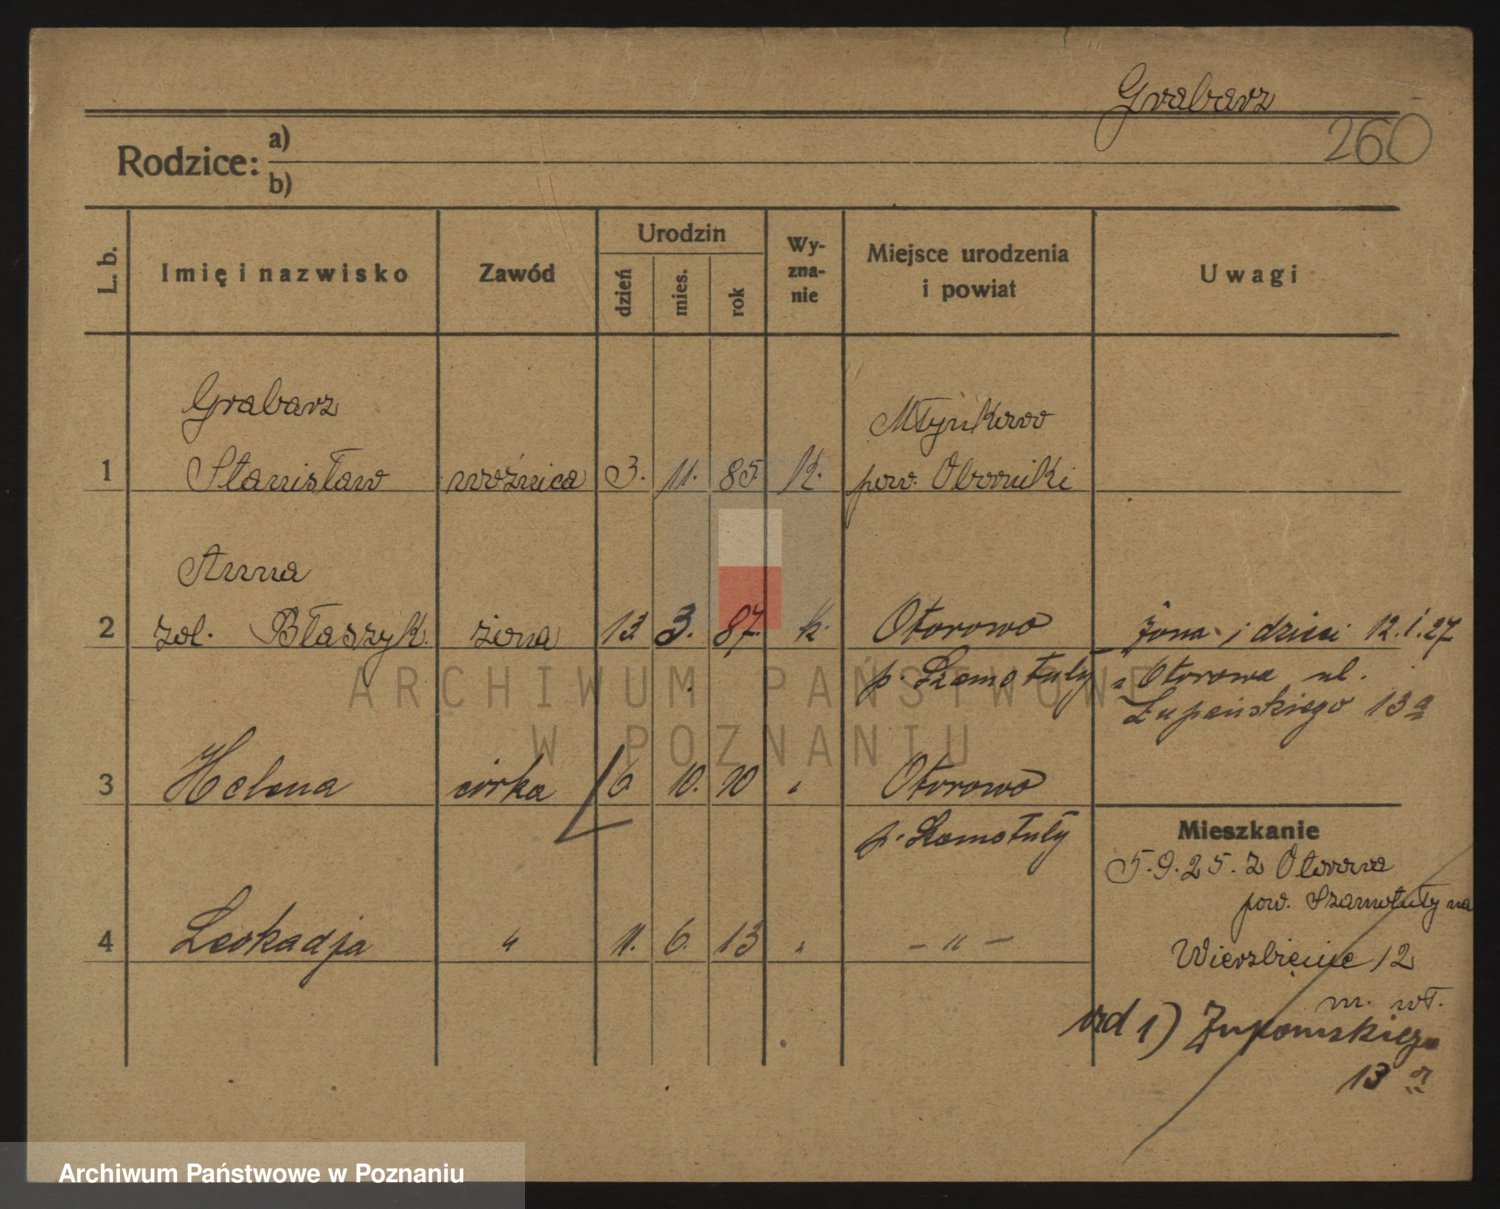 Grabarz
260
Rodzice: a)
b)
L. b. Imię i nazwisko Zawód Urodzin dzień mies. rok Wy-zna-nie Miejsce urodzenia i powiat Uwagi
Grabarz Młynkowo
1 Stanisław woźnica 3. 11. 85. k. pow. Oborniki
Anna
2 zol. Błaszyk żona 13 3. 87. k. Otorowo żona i dzieci 12.1.27
p. Szamotuły z Otorowa ul.
Łupańskiego 13a
3 Helena córka 6. 10. 10 " Otorowo
p. Szamotuły
Mieszkanie
5.9.25. z Otorowa
pow. Szamotuły na
4 Leokadja " 11. 6. 13 " - " -
Wierzbięcice 12
m. wł.
1) Łupańskiego
13 a
ARCHIWUM PAŃSTWOWE
W POZNANIU
Archiwum Państwowe w Poznaniu